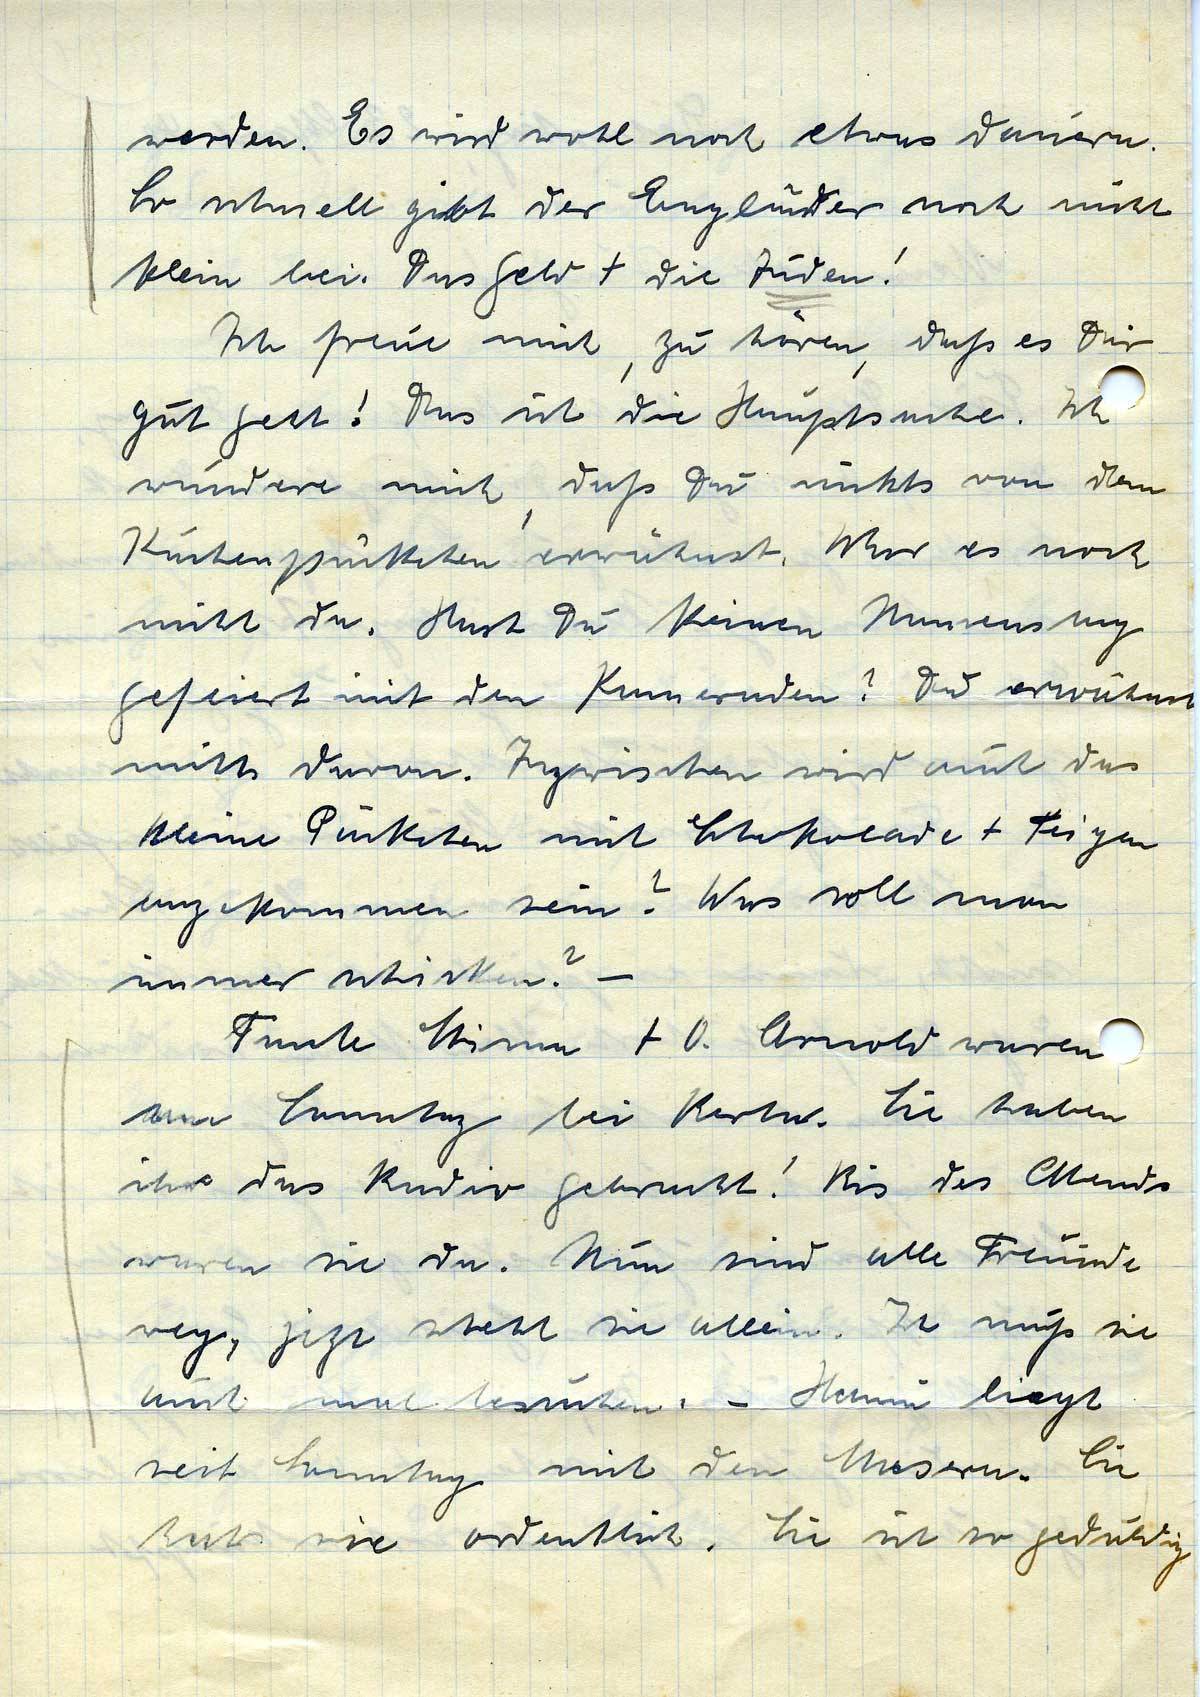 werden. Es wird wohl noch etwas dauern.
So schnell gibt der Engländer noch nicht
klein bei. Das Geld + die Juden!
Ich freue mich, zu hören, daß es Dir
gut geht! Das ist die Hauptsache. Ich
wundere mich, daß Du nichts von dem
Kuchenpäckchen erwähnst. War es noch
nicht da. Hast Du keinen Namenstag
gefeiert mit den Kameraden? Du erwähnst
nichts davon. Inzwischen wird auch das
kleine Päckchen mit Schokolade + Feigen
angekommen sein? Was soll man
immer schicken? –
Tante Mima + O. Arnold waren
am Sonntag bei Berta. Sie haben
ihr das Radio gebracht! Bis des Abends
waren sie da. Nun sind alle Freunde
weg, jetzt steht sie allein. Ich muß sie
auch mal besuchen. – Hanni liegt
seit Sonntag mit den Masern. Sie
hat sie ordentlich. Sie ist so geduldig